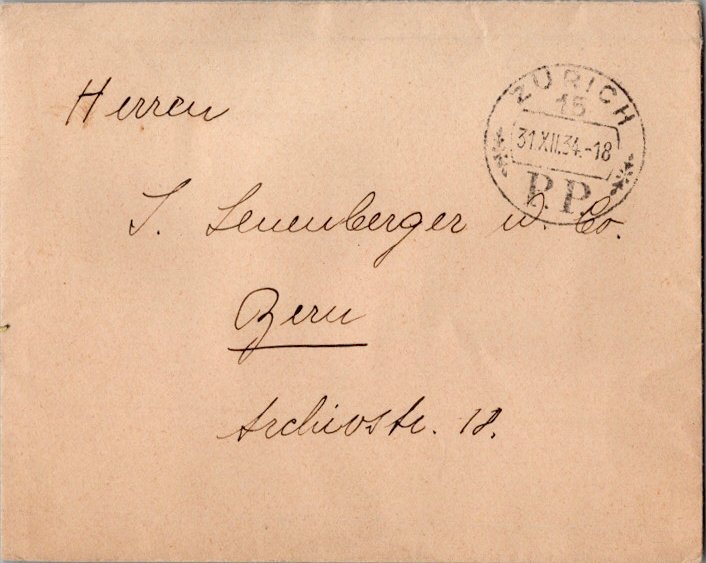 Herren
ZÜRICH
15
31.XII.34.-18
P.P.
S. Leuenberger u. Co.
Bern
Archivstr. 18.